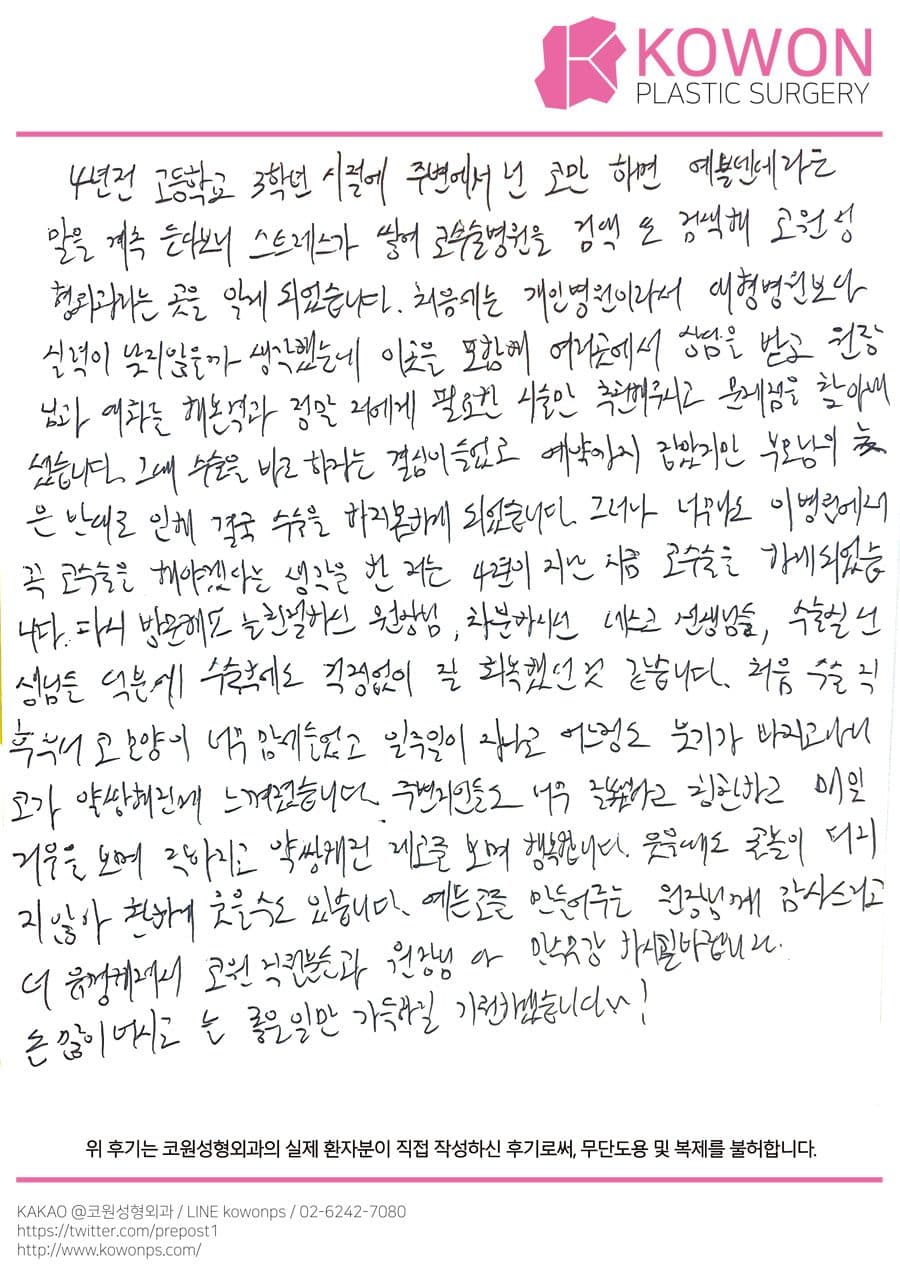 KOWON
PLASTIC SURGERY
4년전 고등학교 3학년 시절에 주변에서 넌 코만 하면 예쁠텐데라는
말을 계속 듣다보니 스트레스가 쌓여 코수술병원을 검색 또 검색해 코원성
형외과라는 곳을 알게 되었습니다. 처음에는 개인병원이라서 대형병원보다
실력이 낮지않을까 생각했는데 이곳을 포함해 여러곳에서 상담을 받고 원장
님과 대화를 해본결과 정말 저에게 필요한 시술만 추천해주시고 문제점을 찾아내
셨습니다. 그래 수술을 바로 하자는 결심이 들었고 예약까지 잡았지만 부모님의
은 반대로 인해 결국 수술을 하지못하게 되었습니다. 그러나 너무나도 이병원에서
꼭 코수술을 해야겠다는 생각을 한 저는 4년이 지난 지금 코수술을 하게되었습
니다. 다시 방문해도 늘친절하신 원장님, 차분하시던 데스크 선생님들, 수술실 선
생님들 덕분에 수술후에도 걱정없이 잘 회복했던것 같습니다. 처음 수술 직
후부터 코모양이 너무 맘에들었고 일주일이 지나고 어느정도 붓기가 빠지고나니
코가 얄쌍해진게 느껴졌습니다. 주변지인들도 너무 잘됐다고 칭찬하고 매일
거울을 보며 얄쌍해진 제코를 보며 행복합니다. 웃을때도 콧볼이 퍼지
지않아 환하게 웃을수도 있습니다. 예쁜코를 만들어주는 원장님께 감사드리고
더 코원 직원분들과 원장님 만수무강 하시길바랍니다.
돈 많이버시고 늘 좋은일만 가득하길 기원하겠습니다^^!
위 후기는 코원성형외과의 실제 환자분이 직접 작성하신 후기로써, 무단도용 및 복제를 불허합니다.
KAKAO @코원성형외과 / LINE kowonps / 02-6242-7080
https://twitter.com/prepost1
http://www.kowonps.com/